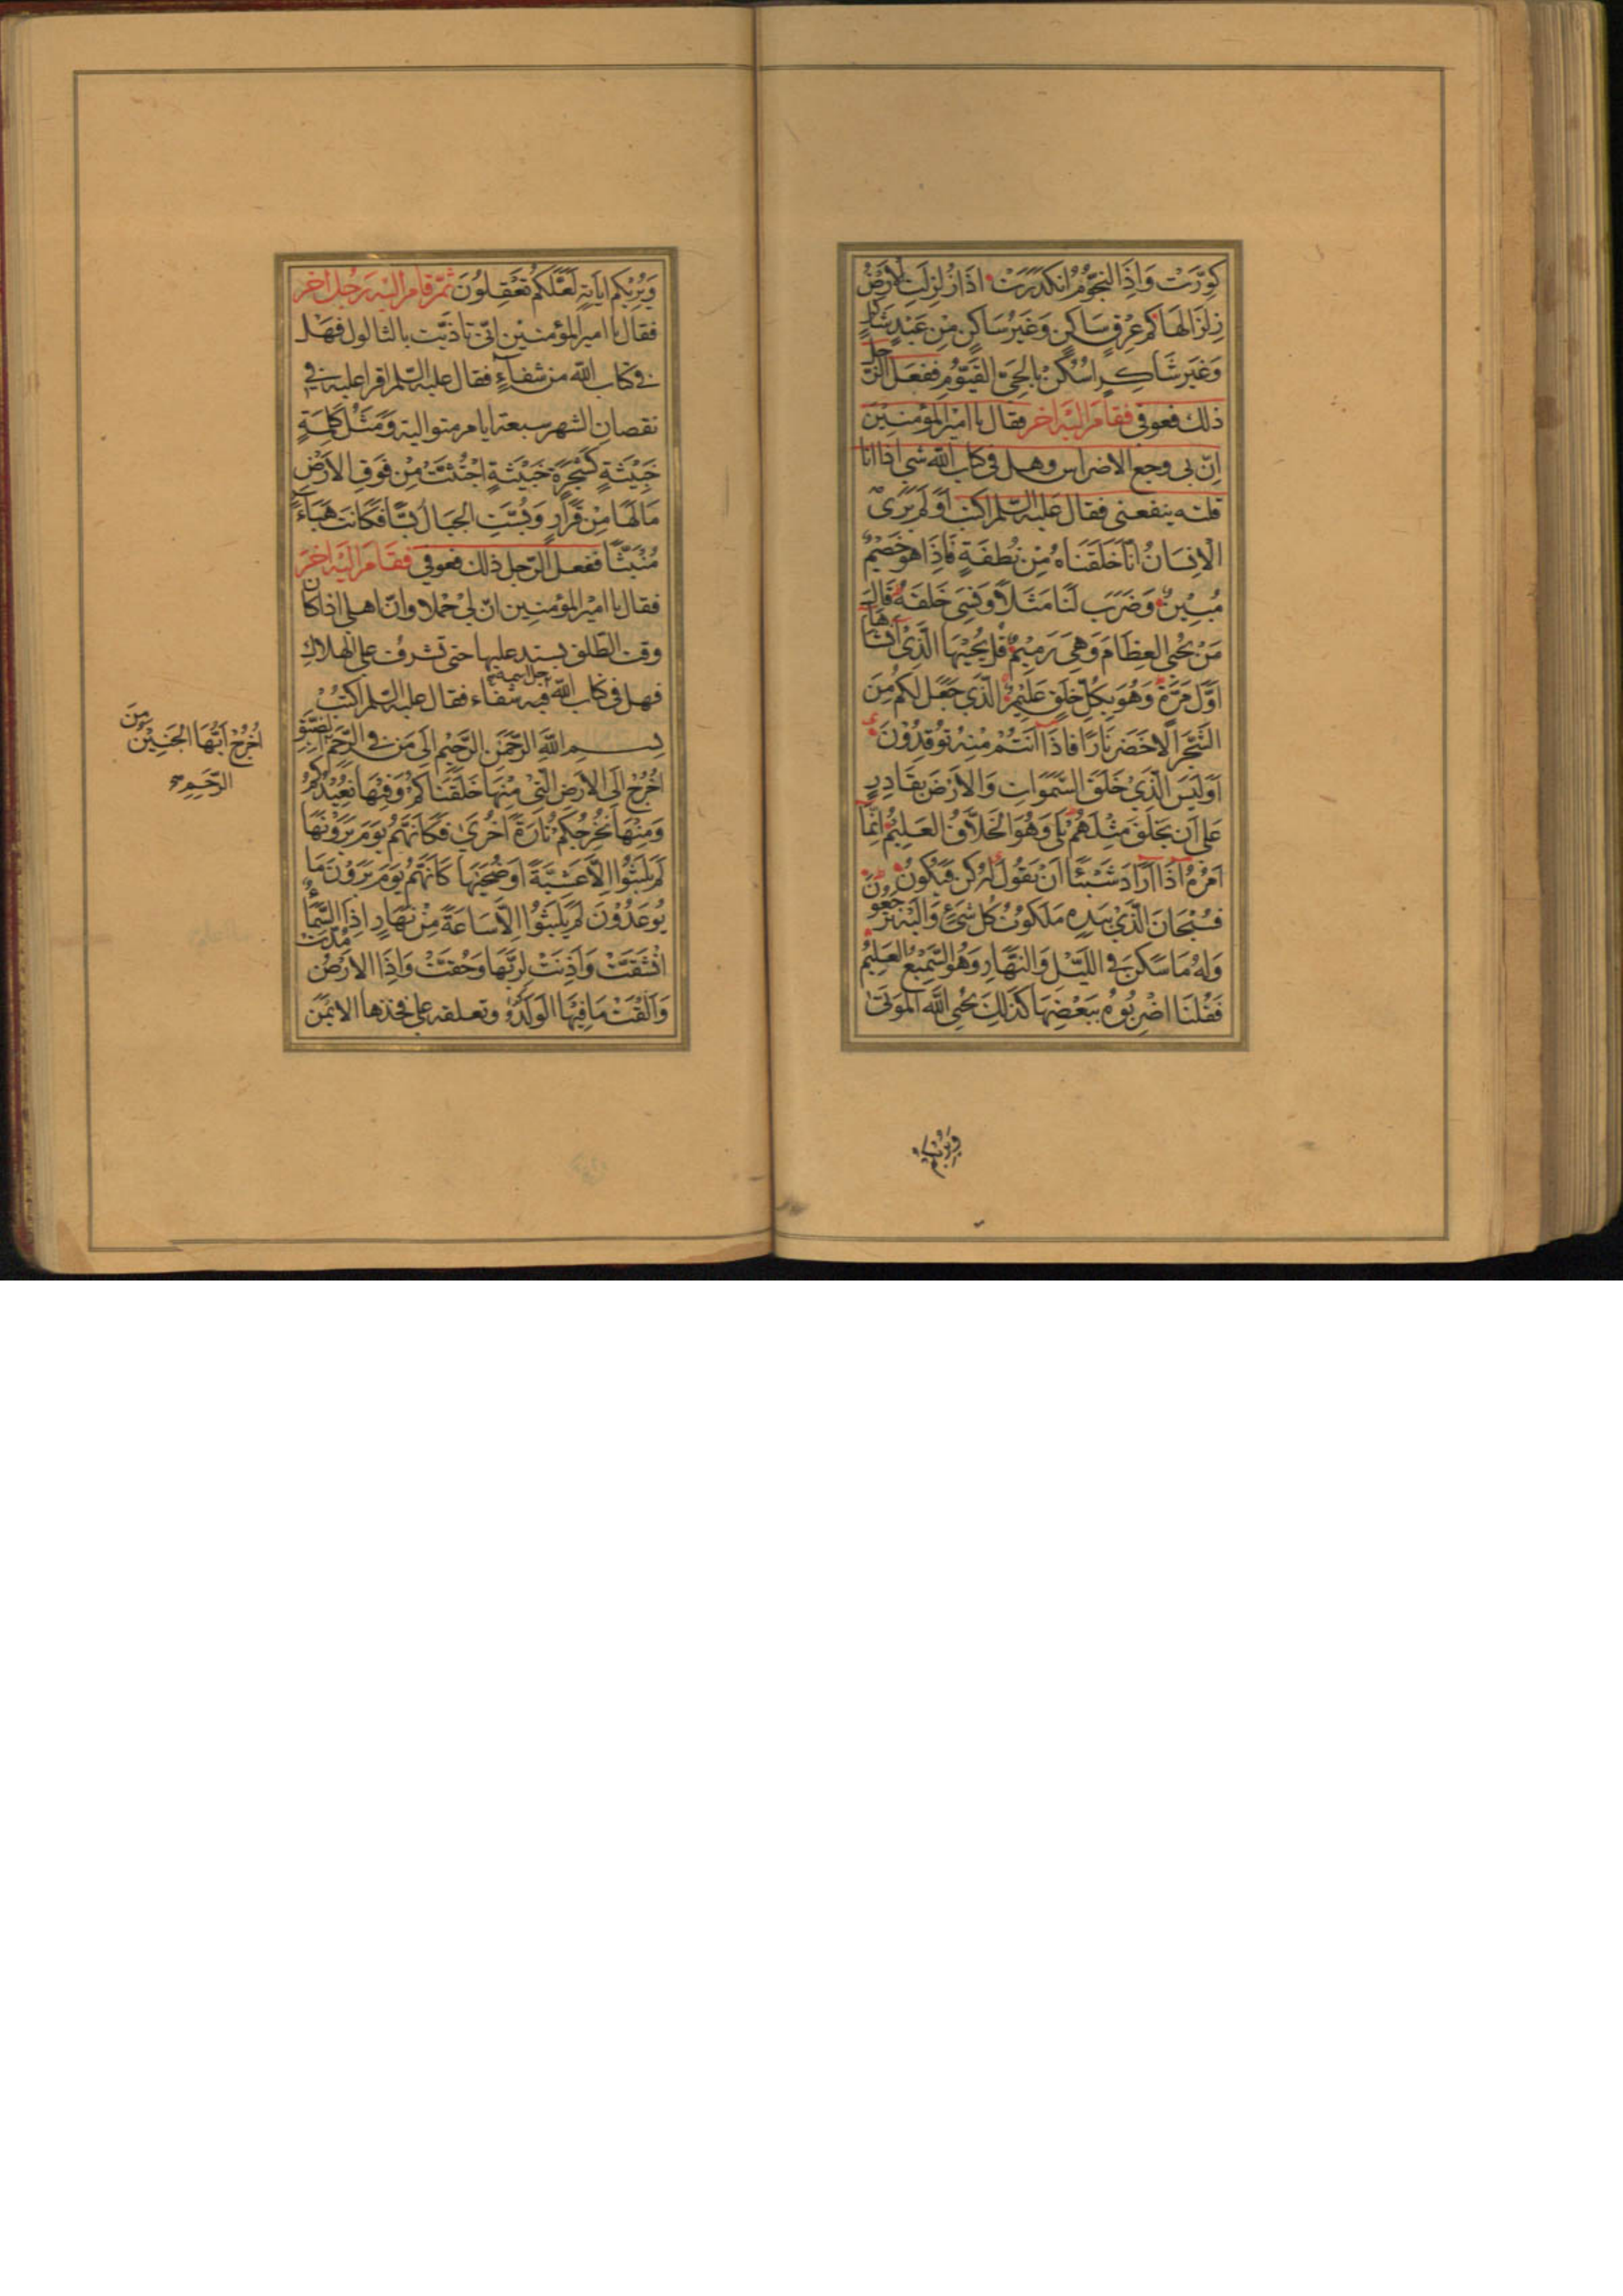 كُوِّرَتْ وَاِذَا النُّجُومُ انْكَدَرَتْ اِذَا زُلْزِلَتِ الْاَرْضُ
زِلْزَالَهَا كَمْ عِرْقٍ سَاكِنٍ وَغَيْرِ سَاكِنٍ مِنْ عَبْدٍ شَاكِرٍ
وَغَيْرِ شَاكِرٍ اُسْكُنْ بِالْحَيِّ الْقَيُّومِ ففعل الرّجل
ذلك فعوفى فقام اليه آخر فقال يا امير المؤمنين
اِنّ بى وجع الاضراس وهل فى كتاب الله شى اذا انا
قلته ينفعنى فقال عليه السّلم اكتب اَوَلَمْ يَرَى
الْاِنْسَانُ اَنَّا خَلَقْنَاهُ مِنْ نُطْفَةٍ فَاِذَا هُوَ خَصِيمٌ
مُبِينٌ وَضَرَبَ لَنَا مَثَلًا وَنَسِىَ خَلْقَهُ قَالَ
مَنْ يُحْيِى الْعِظَامَ وَهِىَ رَمِيمٌ قُلْ يُحْيِيهَا الَّذِى اَنْشَاَهَا
اَوَّلَ مَرَّةٍ وَهُوَ بِكُلِّ خَلْقٍ عَلِيمٌ الَّذِى جَعَلَ لَكُمْ مِنَ
الشَّجَرِ الْاَخْضَرِ نَارًا فَاِذَا اَنْتُمْ مِنْهُ تُوقِدُونَ
اَوَلَيْسَ الَّذِى خَلَقَ السَّمَوَاتِ وَالْاَرْضَ بِقَادِرٍ
عَلَى اَنْ يَخْلُقَ مِثْلَهُمْ بَلَى وَهُوَ الْخَلَّاقُ الْعَلِيمُ اِنَّمَا
اَمْرُهُ اِذَا اَرَادَ شَيْئًا اَنْ يَقُولَ لَهُ كُنْ فَيَكُونُ
فَسُبْحَانَ الَّذِى بِيَدِهِ مَلَكُوتُ كُلِّ شَىْءٍ وَاِلَيْهِ تُرْجَعُونَ
وَلَهُ مَا سَكَنَ فِى اللَّيْلِ وَالنَّهَارِ وَهُوَ السَّمِيعُ الْعَلِيمُ
فَقُلْنَا اضْرِبُوهُ بِبَعْضِهَا كَذَلِكَ يُحْيِى اللهُ الْمَوْتَى
ويريكم
وَيُرِيكُمْ اٰيَاتِهِ لَعَلَّكُمْ تَعْقِلُونَ ثمّ قام اليه رجل آخر
فقال يا امير المؤمنين انّى تاذّيت بالثالول فهل
فى كتاب الله من شفاء فقال عليه السّلم اقرا عليه فى
نقصان الشهر سبعة ايام متوالية وَمَثَلُ كَلِمَةٍ
خَبِيثَةٍ كَشَجَرَةٍ خَبِيثَةٍ اجْتُثَّتْ مِنْ فَوْقِ الْاَرْضِ
مَا لَهَا مِنْ قَرَارٍ وَبُسَّتِ الْجِبَالُ بَسًّا فَكَانَتْ هَبَاءً
مُنْبَثًّا ففعل الرّجل ذلك فعوفى فقام اليه آخر
فقال يا امير المؤمنين انّ لى حملا وانّ اهلى اذا كان
وقت الطّلق يشتد عليها حتى تشرف على الهلاك
فهل فى كتاب الله جل اسمه فيه شفاء فقال عليه السّلم اكتب
بِسْمِ اللهِ الرَّحْمَنِ الرَّحِيمِ اِلَى مَنْ فِى الرَّحِمِ الضَّيِّقِ
اُخْرُجْ اِلَى الْاَرْضِ الَّتِى مِنْهَا خَلَقْنَاكُمْ وَفِيهَا نُعِيدُكُمْ
وَمِنْهَا نُخْرِجُكُمْ تَارَةً اُخْرَى فَكَاَنَّهُمْ يَوْمَ يَرَوْنَهَا
لَمْ يَلْبَثُوا اِلَّا عَشِيَّةً اَوْ ضُحَيهَا كَاَنَّهُمْ يَوْمَ يَرَوْنَ مَا
يُوعَدُونَ لَمْ يَلْبَثُوا اِلَّا سَاعَةً مِنْ نَهَارٍ اِذَا السَّمَاءُ
انْشَقَّتْ وَاَذِنَتْ لِرَبِّهَا وَحُقَّتْ وَاِذَا الْاَرْضُ مُدَّتْ
وَاَلْقَتْ مَا فِيهَا الْوَلَدُ وتعلقه على فخذها الايمن
اُخْرُجْ اَيُّهَا الْجَنِينُ مِنَ
الرَّحِمِ